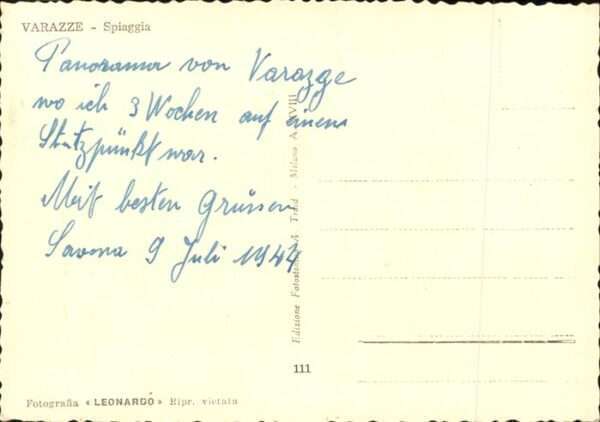 VARAZZE - Spiaggia
Panorama von Varazze
wo ich 3 Wochen auf einem
Stützpunkt war.
Mit besten Grüssen
Savona 9 Juli 1944
Edizione A. Traldi - Milano A XVIII
111
Fotografia « LEONARDO » Ripr. vietata